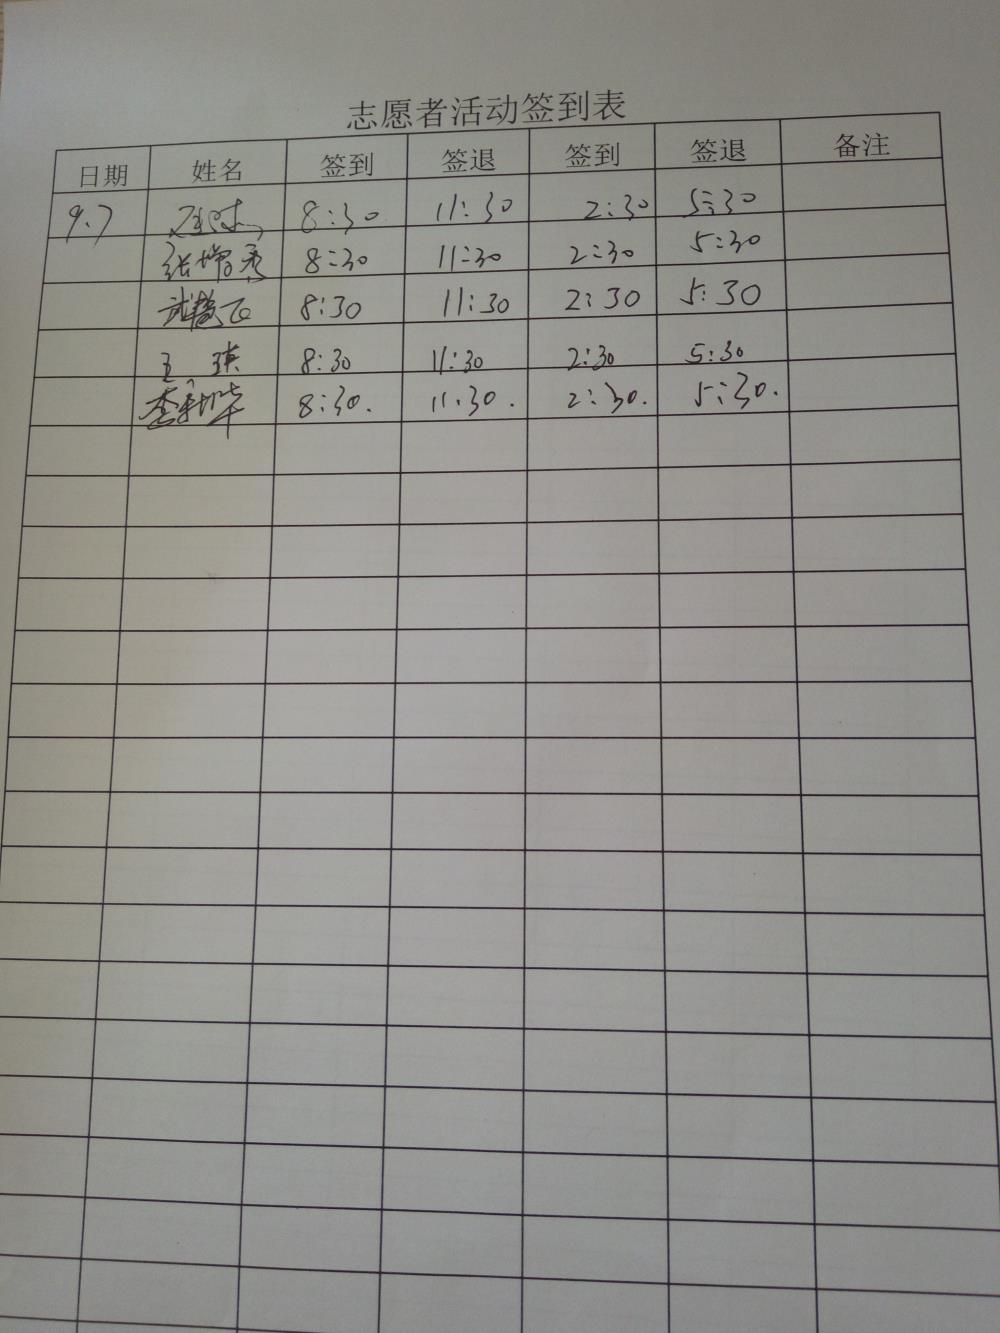 志愿者活动签到表
日期 姓名 签到 签退 签到 签退 备注
9.7 8:30 11:30 2:30 5:30
张增秀 8:30 11:30 2:30 5:30
武艳飞 8:30 11:30 2:30 5:30
王琪 8:30 11:30 2:30 5:30
8:30. 11:30. 2:30. 5:30.